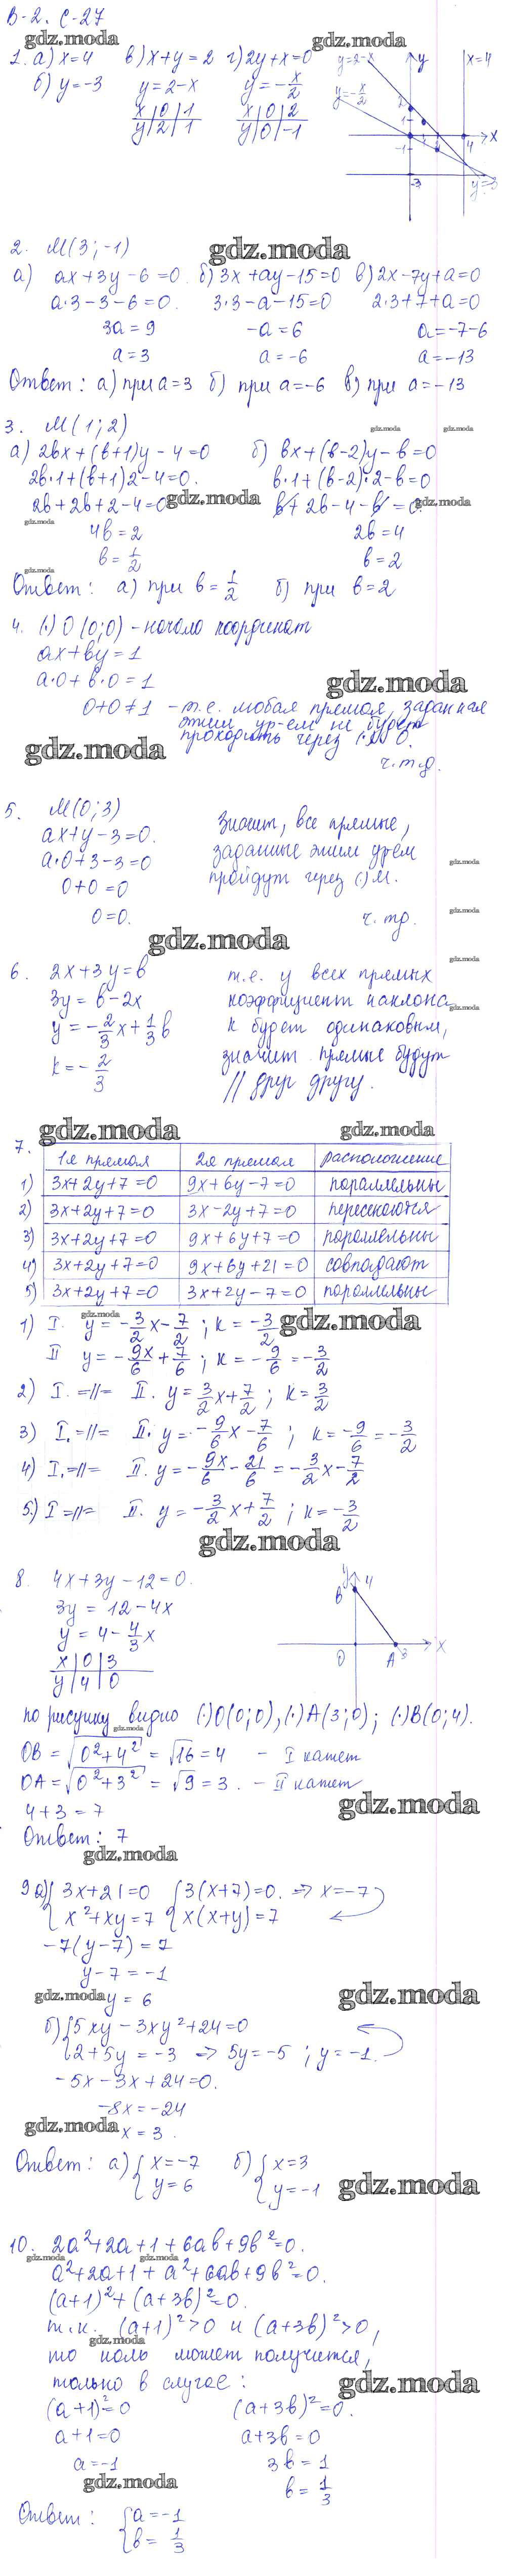 В-2. С-27
gdz.moda
gdz.moda
1. а) x=4 в) x+y=2 г) 2y+x=0
б) y=-3 y=2-x y=-x/2
x|0|1 x|0|2
y|2|1 y|0|-1
y=2-x y x=4
y=-x/2
2
1
-1 4 x
-3 y=-3
2. M(3;-1)
gdz.moda
а) ax+3y-6=0 б) 3x+ay-15=0 в) 2x-7y+a=0
a·3-3-6=0. 3·3-a-15=0 2·3+7+a=0
3a=9 -a=6 a=-7-6
a=3 a=-6 a=-13
Ответ: а) при a=3 б) при a=-6 в) при a=-13
3. M(1;2)
gdz.moda gdz.moda
а) 2bx+(b+1)y-4=0 б) bx+(b-2)y-b=0
2b·1+(b+1)2-4=0. b·1+(b-2)·2-b=0
2b+2b+2-4=0 gdz.moda b+2b-4-b=0. gdz.moda
gdz.moda
4b=2 2b=4
b=1/2 b=2
gdz.moda
Ответ: а) при b=1/2 б) при b=2
4. (·) O(0;0) - начало координат
ax+by=1
a·0+b·0=1
gdz.moda
0+0≠1 - т.е. любая прямая, заданная
этим ур-ем не будет
проходить через (·) O.
gdz.moda
ч.т.д.
5. M(0;3)
ax+y-3=0. Значит, все прямые,
a·0+3-3=0 заданные этим ур-ем
gdz.moda
0+0=0 пройдут через (·) M.
0=0. ч.тд.
gdz.moda
gdz.moda
gdz.moda
6. 2x+3y=b т.е. у всех прямых
3y=b-2x коэффициент наклона
gdz.moda
y=-2/3x+1/3b k будет одинаковым,
k=-2/3 значит прямые будут
// друг другу.
gdz.moda
gdz.moda
7. 1я прямая | 2я прямая | расположение
1) 3x+2y+7=0 | 9x+6y-7=0 | параллельны
2) 3x+2y+7=0 | 3x-2y+7=0 | пересекаются
3) 3x+2y+7=0 | 9x+6y+7=0 | параллельны
4) 3x+2y+7=0 | 9x+6y+21=0 | совпадают
5) 3x+2y+7=0 | 3x+2y-7=0 | параллельны
gdz.moda
1) I. y=-3/2x-7/2; k=-3/2 gdz.moda
II y=-9x/6+7/6; k=-9/6=-3/2
2) I. =//= II. y=3/2x+7/2; k=3/2
3) I. =//= II. y=-9/6x-7/6; k=-9/6=-3/2
4) I. =//= II. y=-9x/6-21/6=-3/2x-7/2
5.) I =//= II. y=-3/2x+7/2; k=-3/2
gdz.moda
8. 4x+3y-12=0.
3y=12-4x
y=4-4/3x
x|0|3
y|4|0
y 4
B
O A 3 x
по рисунку видно (·)O(0;0), (·)A(3;0); (·)B(0;4).
gdz.moda
OB=√0²+4²=√16=4 - I катет
OA=√0²+3²=√9=3. - II катет
4+3=7
gdz.moda
Ответ: 7
gdz.moda
9 а) {3x+21=0 {3(x+7)=0. => x=-7
{x²+xy=7 {x(x+y)=7
-7(y-7)=7
y-7=-1
gdz.moda y=6
gdz.moda
б) {5xy-3xy²+24=0
{2+5y=-3 => 5y=-5; y=-1.
-5x-3x+24=0.
-8x=-24
gdz.moda x=3.
Ответ: а) {x=-7 б) {x=3
{y=6 {y=-1
gdz.moda
10. 2a²+2a+1+6ab+9b²=0.
gdz.moda gdz.moda
a²+2a+1+a²+6ab+9b²=0.
(a+1)²+(a+3b)²=0.
т.к. (a+1)²>0 и (a+3b)²>0,
gdz.moda
то ноль может получится,
только в случае:
gdz.moda
(a+1)²=0 (a+3b)²=0.
a+1=0 a+3b=0
a=-1 3b=1
gdz.moda
b=1/3
Ответ: {a=-1
{b=1/3